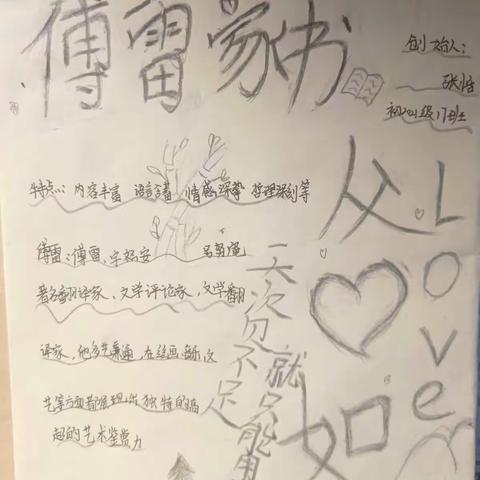 傅雷家书
创始人:
张恺
初2021级17班
特点: 内容丰富 语言含蓄 情感深挚 哲理深刻等
傅雷:傅雷,字怒安 号努庵
著名翻译家、文学评论家,文学翻
译家,他多艺兼通,在绘画、文
艺等方面都展现出独特的高
超的艺术鉴赏力
一天次见不足人
就只能用
父
如
Love